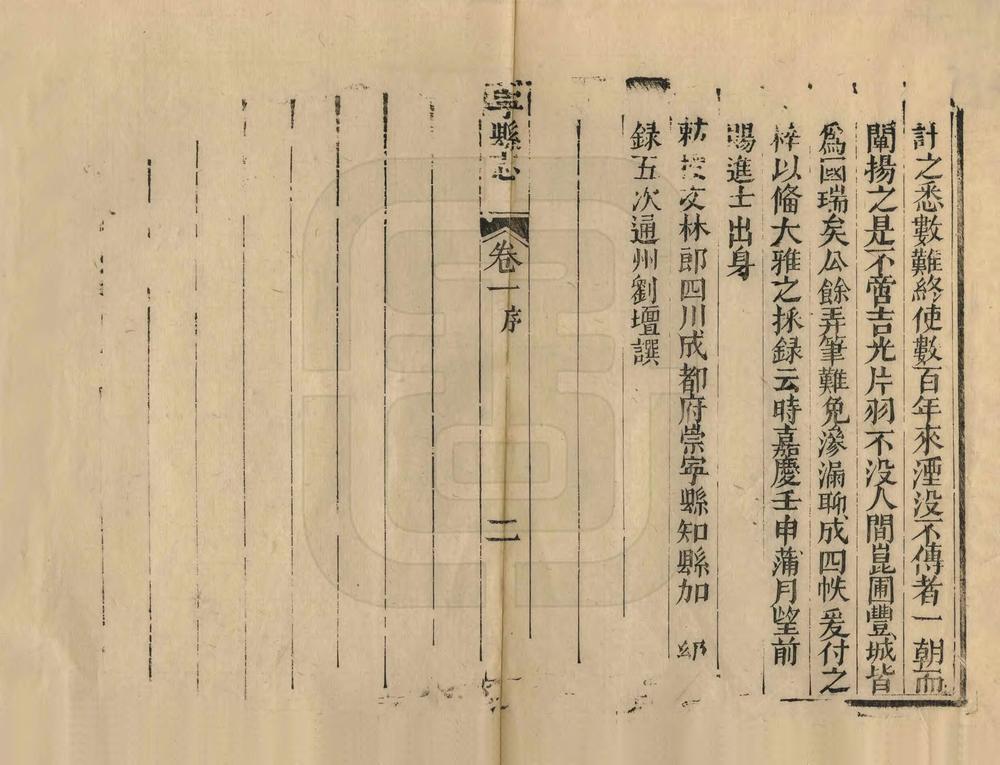 計之悉數難終使數百年來湮没不傳者一朝而
闡揚之是不啻吉光片羽不没人間崑圃豐城皆
爲國瑞矣公餘弄筆難免滲漏聊成四帙爰付之
梓以俻大雅之採録云時嘉慶壬申蒲月望前
賜進士出身
勅授文林郎四川成都府崇寧縣知縣加
録五次通州劉壇譔
寧縣志
卷一
序
二